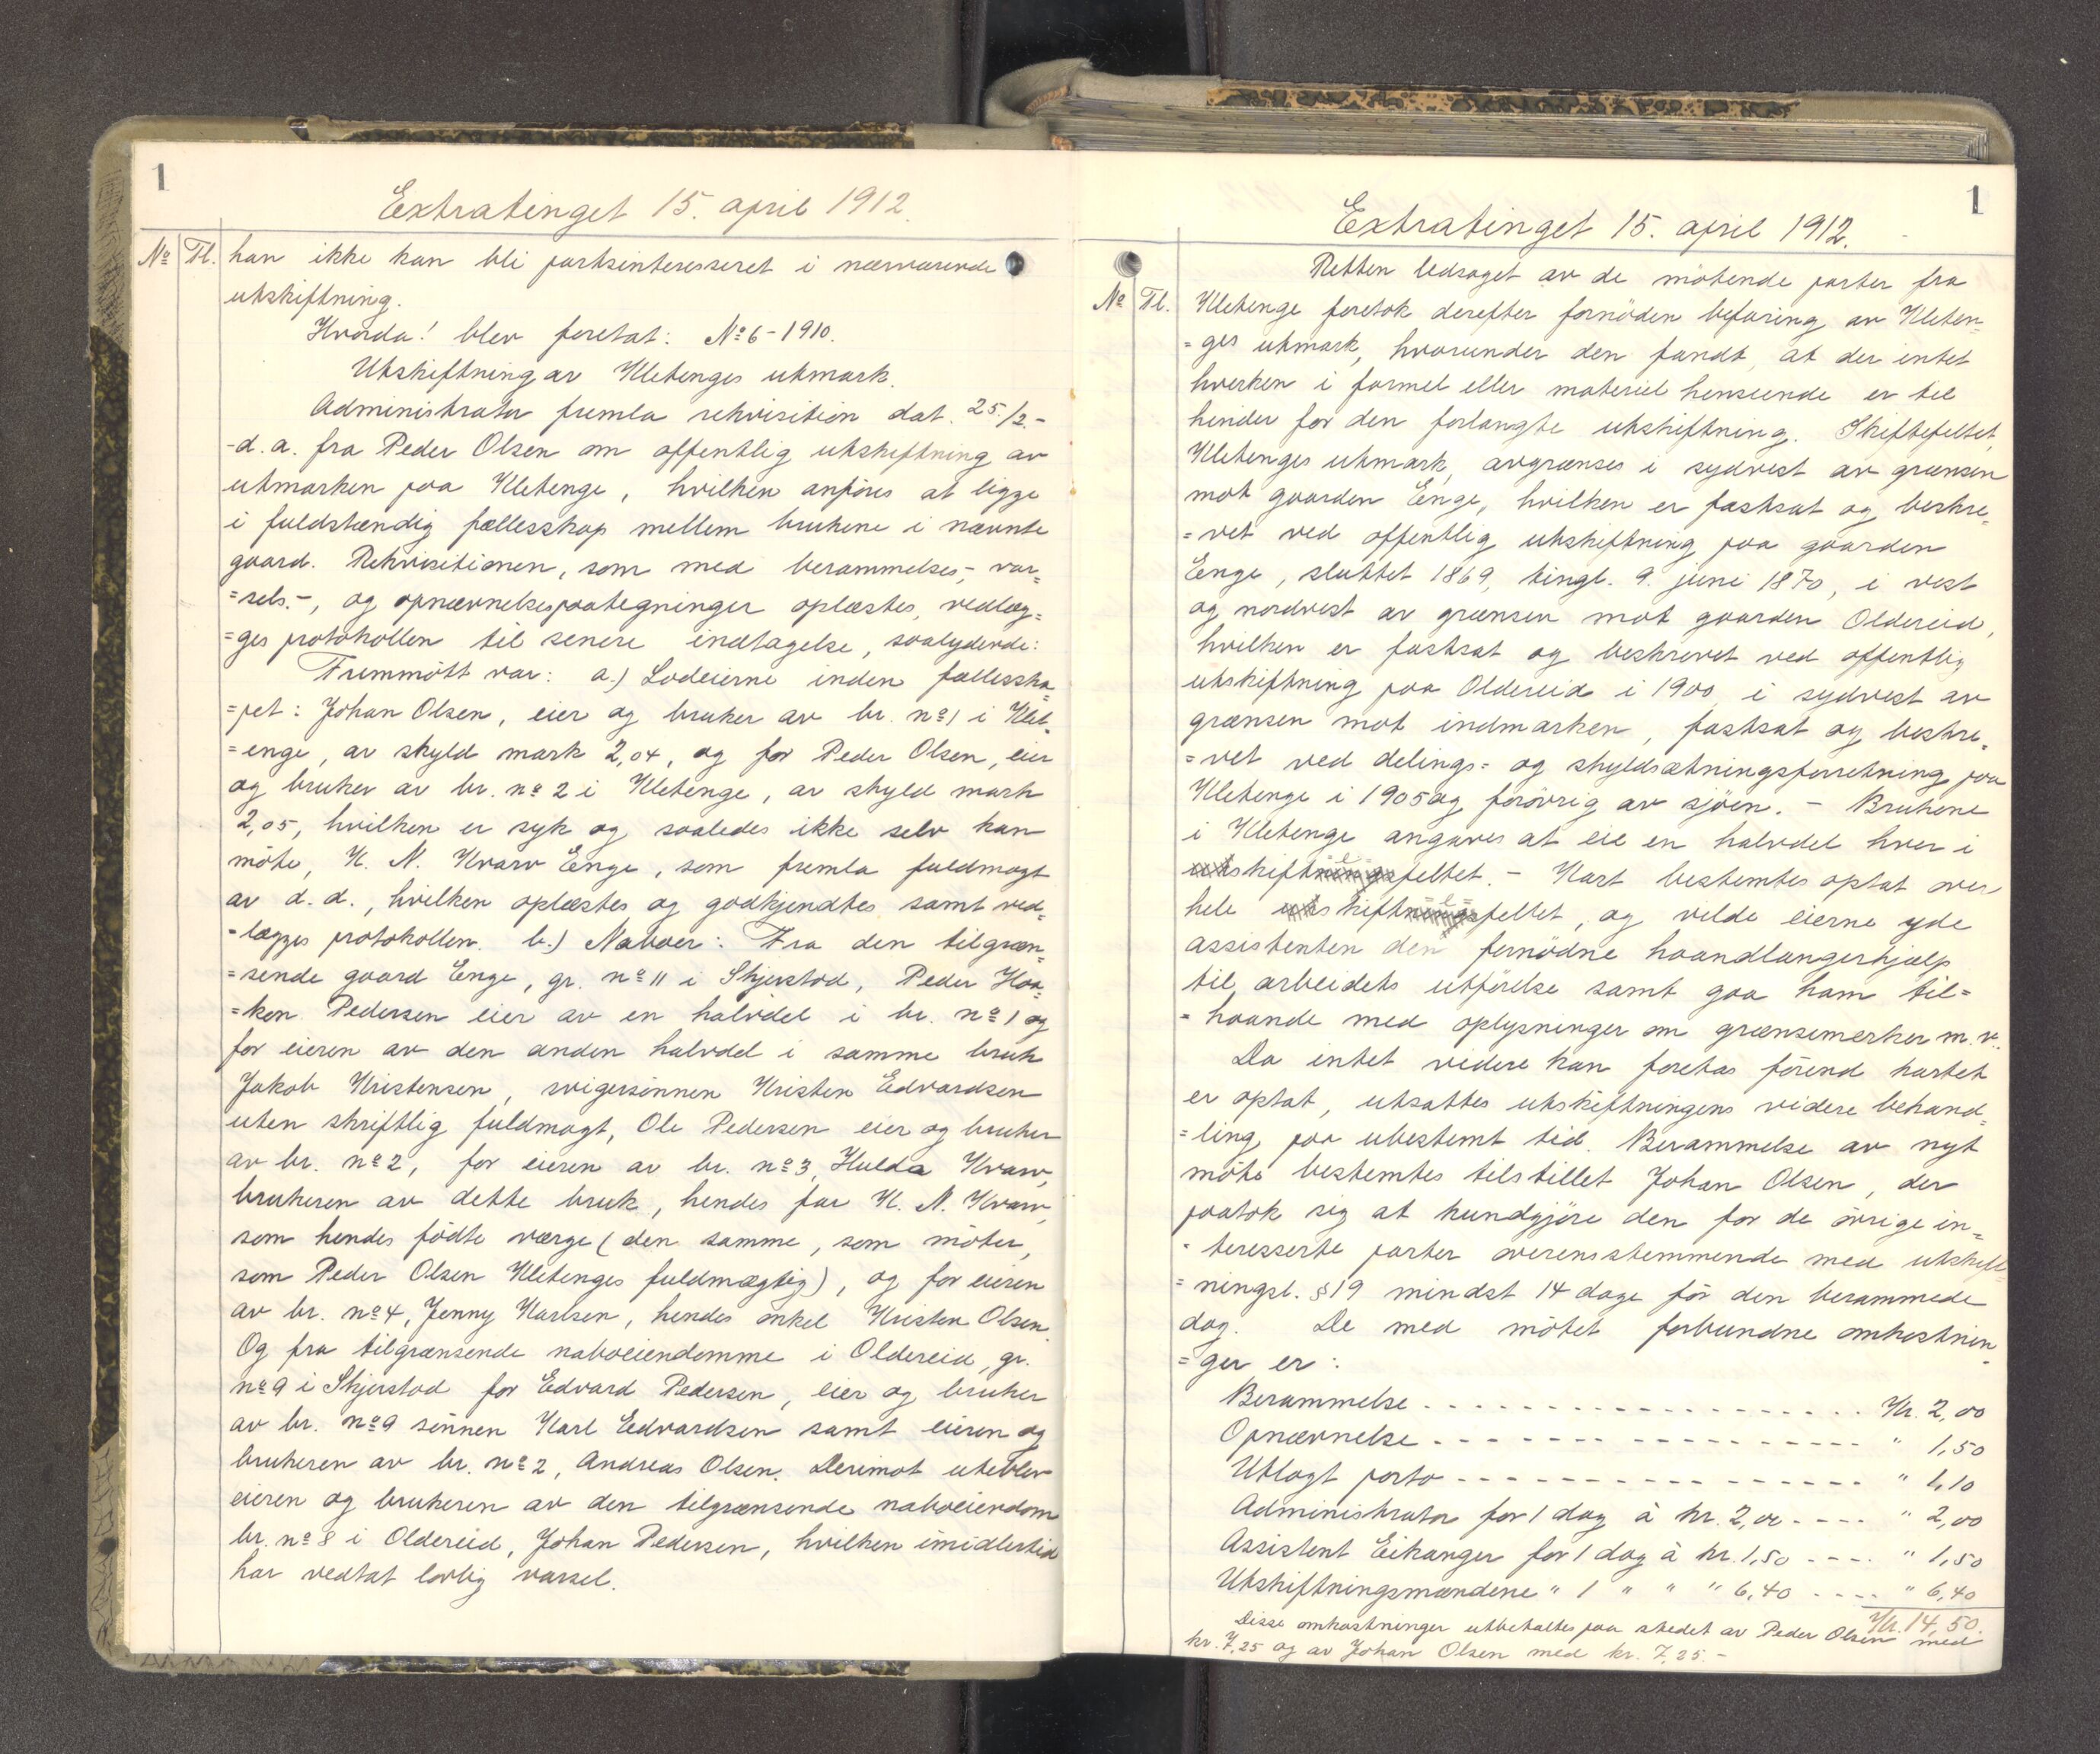 1
Extratinget 15. april 1912.
No Tl. han ikke kan bli partsinteresseret i nærværende
utskiftning.
Hvorda! blev foretat: No 6 - 1910.
Utskiftning av Kletenges utmark.
Administrator fremla rekvisition dat. 25./2.-
-d.a. fra Peder Olsen om offentlig utskiftning av
utmarken paa Kletenge, hvilken anføres at ligge
i fuldstændig fællesskap mellem brukene i nævnte
gaard. Rekvisitionen, som med berammelses-, var=
=sels.-, og opnævnelsespaategninger oplæstes, vedlæg=
=ges protokollen til senere indtagelse, saalydende:
Fremmött var: a.) Lodeierne inden fællesska=
=pet: Johan Olsen, eier og bruker av br. no 1 i Klet=
=enge, av skyld mark 2,04, og for Peder Olsen, eier
og bruker av br. no 2 i Kletenge, av skyld mark
2,05, hvilken er syk og saaledes ikke selv kan
möte, K. N. Kvarv Enge, som fremla fuldmagt
av d. d., hvilken oplæstes og godkjendtes samt ved=
=lægges protokollen. b.) Naboer: Fra den tilgræn=
=sende gaard Enge, gr. no 11 i Skjerstad, Peder Haa=
=ken Pedersen eier av en halvdel i br. no 1 og
for eieren av den anden halvdel i samme bruk
Jakob Kristensen, svigersönnen Kristen Edvardsen
uten skriftlig fuldmagt, Ole Pedersen eier og bruker
av br. no 2, for eieren av br. no 3, Hulda Kvarv,
brukeren av dette bruk, hendes far K. N. Kvarv,
som hendes födte værge (den samme, som möter,
som Peder Olsen Kletenges fuldmægtig), og for eieren
av br. no 4, Jenny Karlsen, hendes onkel Kristen Olsen.
Og fra tilgrænsende naboeiendomme i Oldereid, gr.
no 9 i Skjerstad for Edvard Pedersen, eier og bruker
av br. no 9 sönnen Karl Edvardsen samt eieren og
brukeren av br. no 2, Andreas Olsen. Derimot uteblev
eieren og brukeren av den tilgrænsende naboeiendom
br. no 8 i Oldereid, Johan Pedersen, hvilken imidlertid
har vedtat lovlig varsel.
1
Extratinget 15. april 1912.
Retten ledsaget av de mötende parter fra
No Tl. Kletenge foretok derefter fornöden befaring av Kleten=
=ges utmark, hvorunder den fandt, at der intet
hverken i formel eller materiel henseende er til
hinder for den forlangte utskiftning. Skiftefeltet,
Kletenges utmark, avgrænses i sydvest av grænsen
mot gaarden Enge, hvilken er fastsat og beskre=
=vet ved offentlig utskiftning paa gaarden
Enge, sluttet 1869, tingl. 9. juni 1870, i vest
og nordvest av grænsen mot gaarden Oldereid,
hvilken er fastsat og beskrevet ved offentlig
utskiftning paa Oldereid i 1900, i sydvest av
grænsen mot indmarken, fastsat og beskre=
=vet ved delings= og skyldsætningsforretning paa
Kletenge i 1905 og forövrig av sjöen. - Brukene
i Kletenge angaves at eie en halvdel hver i
utskiftningsfeltet. - Kart bestemtes optat over
hele utskiftningsfeltet, og vilde eierne yde
assistenten den fornödne haandlangerhjælp
til arbeidets utförelse samt gaa ham til=
=haande med oplysninger om grænsemerker m. v.
Da intet videre kan foretas förend kartet
er optat, utsattes utskiftningens videre behand=
=ling paa ubestemt tid. Berammelse av nyt
möte bestemtes tilstillet Johan Olsen, der
paatok sig at kundgjöre den for de övrige in=
=teresserte parter overensstemmende med utskift=
=ningsl. § 19 mindst 14 dage för den berammede
dag. De med mötet forbundne omkostnin=
=ger er:
Berammelse - - - - - - Kr. 2,00
Opnævnelse - - - - - - " 1,50
Utlagt porto - - - - - - " 1,10
Administrator for 1 dag à kr. 2,00 - - - - " 2,00
Assistent Eikanger for 1 dag à kr. 1,50 - - - - " 1,50
Utskiftningsmændene " 1 " " " 6,40 - - - - " 6,40
Kr. 14,50.
Disse omkostninger utbetaltes paa stedet av Peder Olsen med
kr. 7,25 og av Johan Olsen med kr. 7,25. -